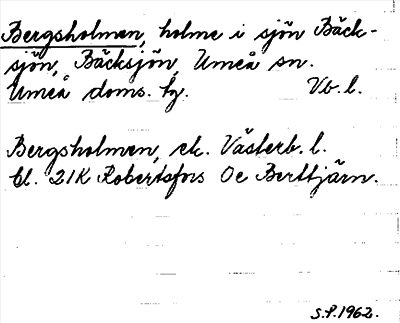 Bergsholmen, holme i sjön Bäck-
sjön, Bäcksjön, Umeå sn.
Umeå doms. tg. Vb. l.
Bergsholmen, ek. Västerb. l.
bl. 21K Robertsfors Oc Berttjärn.
S.P. 1962.